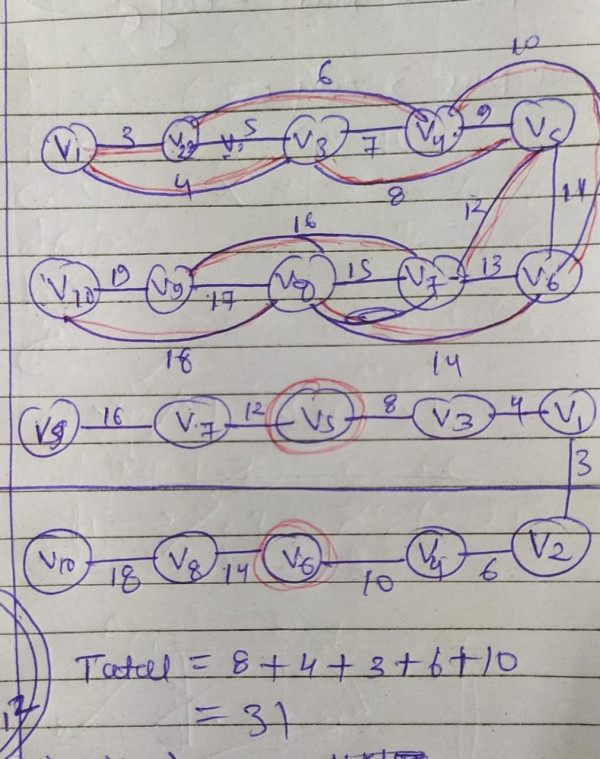 10
6
V1 3 V2 5 V3 7 V4 9 V5
4 8
12 11
16
V10 19 V9 17 V8 15 V7 13 V6
18 14
V9 16 V7 12 V5 8 V3 4 V1
3
V10 18 V8 14 V6 10 V4 6 V2
Total = 8 + 4 + 3 + 6 + 10
= 31